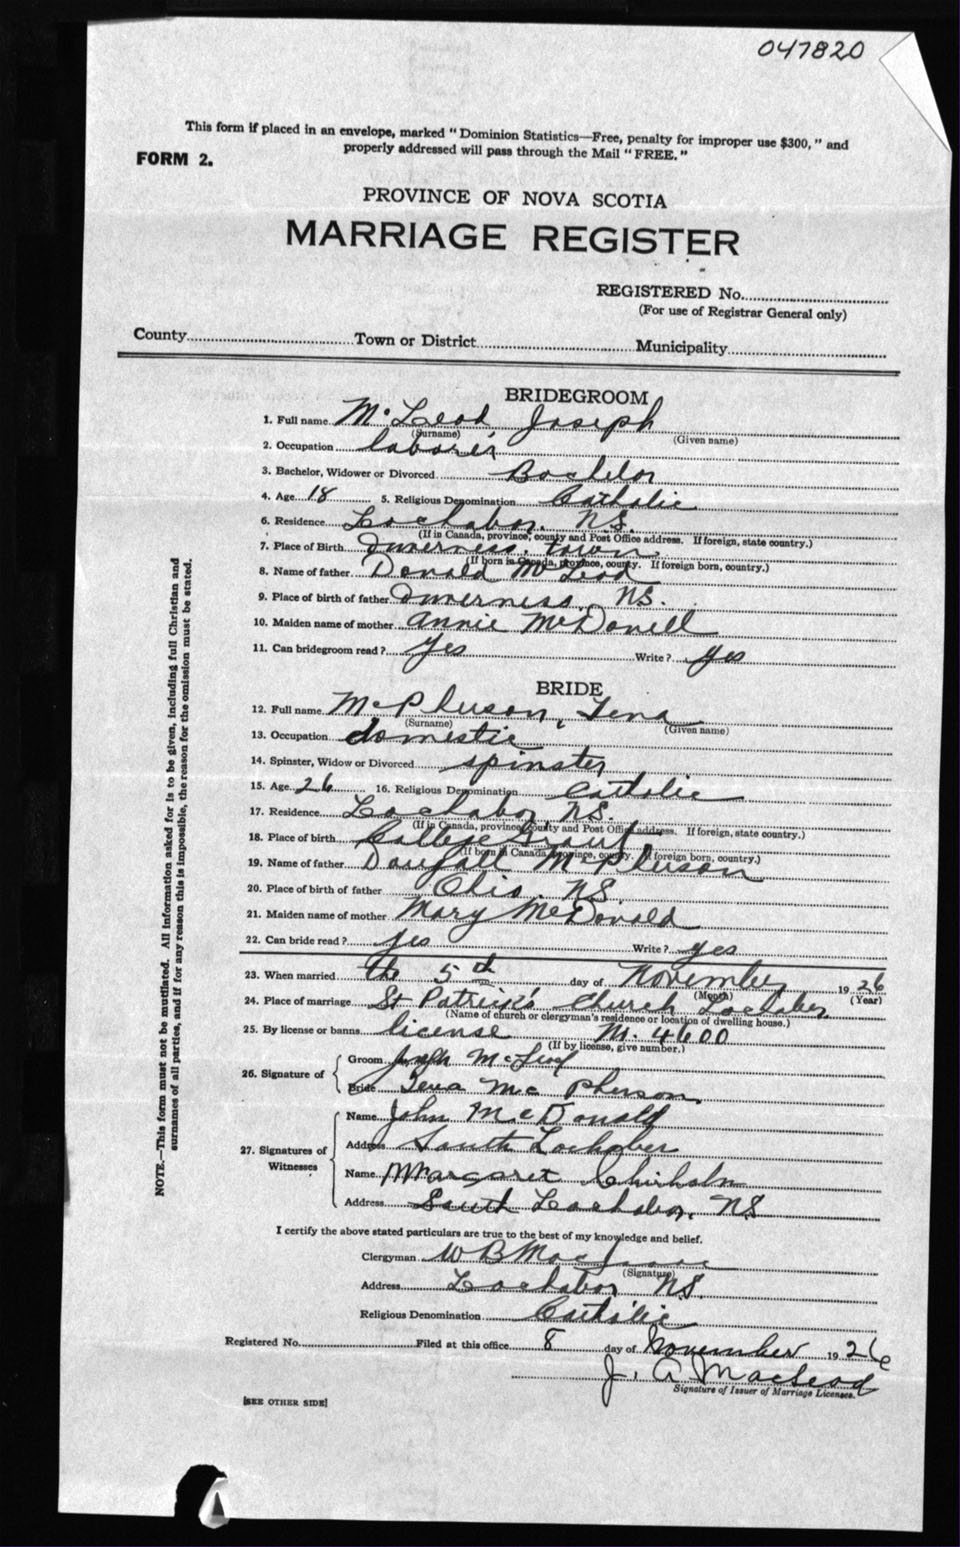 047820
This form if placed in an envelope, marked "Dominion Statistics—Free, penalty for improper use $300," and
FORM 2. properly addressed will pass through the Mail "FREE."
PROVINCE OF NOVA SCOTIA
MARRIAGE REGISTER
REGISTERED No.
(For use of Registrar General only)
County Town or District Municipality
BRIDEGROOM
1. Full name McLeod Joseph
(Surname) (Given name)
2. Occupation laborer
3. Bachelor, Widower or Divorced Bachelor
4. Age 18 5. Religious Denomination Catholic
6. Residence Lochabor. N.S.
(If in Canada, province, county and Post Office address. If foreign, state country.)
7. Place of Birth Inverness, town
(If born in Canada, province, county. If foreign born, country.)
8. Name of father Donald McLeod
9. Place of birth of father Inverness, N.S.
10. Maiden name of mother Annie McDonell
11. Can bridegroom read? Yes Write? yes
BRIDE
12. Full name McPherson, Tena
(Surname) (Given name)
13. Occupation domestic
14. Spinster, Widow or Divorced spinster
15. Age 26 16. Religious Denomination Catholic
17. Residence Lochabor N.S.
(If in Canada, province, county and Post Office address. If foreign, state country.)
18. Place of birth College Grant
(If born in Canada, province, county. If foreign born, country.)
19. Name of father Dougall McPherson
20. Place of birth of father Ohio. N.S.
21. Maiden name of mother Mary McDonald
22. Can bride read? yes Write? yes
23. When married the 5th day of November 1926
(Month) (Year)
24. Place of marriage St Patrick's Church Lochaber
(Name of church or clergyman's residence or location of dwelling house.)
25. By license or banns license M. 4600
(If by license, give number.)
26. Signature of Groom Joseph McLeod
Bride Tena McPherson
27. Signatures of Witnesses Name John McDonald
Address South Lochaber
Name Margaret Chisholm
Address South Lochabor, N.S.
I certify the above stated particulars are true to the best of my knowledge and belief.
Clergyman W B MacIsaac
(Signature)
Address Lochabor N.S.
Religious Denomination Catholic
Registered No. Filed at this office 8 day of November 1926
J. A. MacLeod
Signature of Issuer of Marriage Licenses.
[SEE OTHER SIDE]
NOTE.—This form must not be mutilated. All information asked for is to be given, including full Christian and
surnames of all parties, and if for any reason this is impossible, the reason for the omission must be stated.